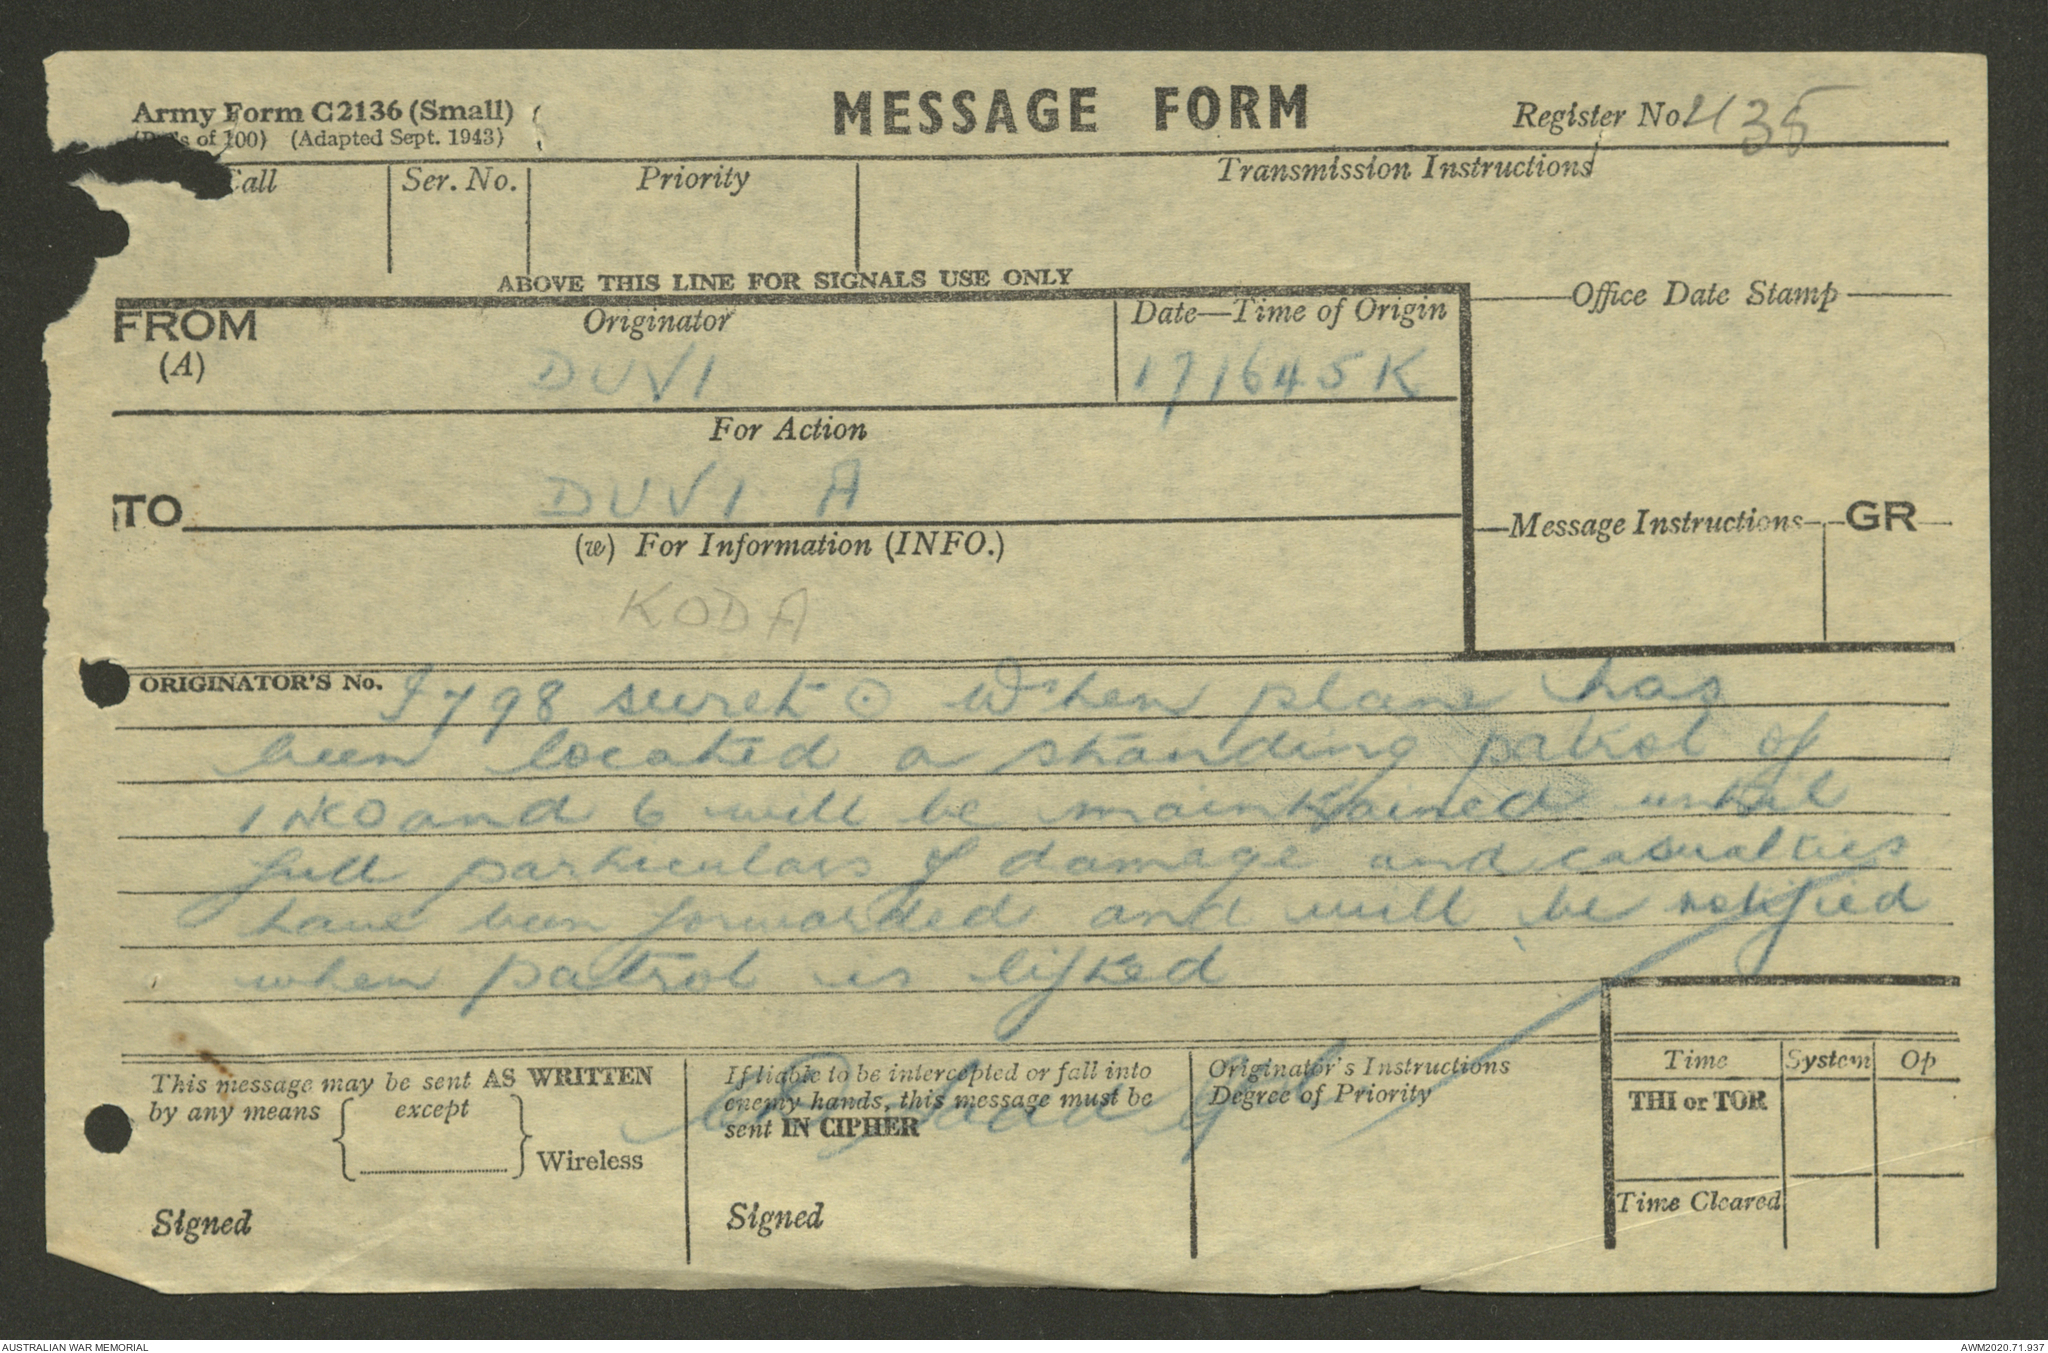 Army Form C2136 (Small)
MESSAGE FORM
Register No. 435
of 100) (Adapted Sept. 1943)
Call
Ser. No.
Priority
Transmission Instructions
ABOVE THIS LINE FOR SIGNALS USE ONLY
FROM
(A)
Originator
Date—Time of Origin
Office Date Stamp
DUVI
171645K
For Action
TO
DUVI A
(w) For Information (INFO.)
Message Instructions
GR
KODA
ORIGINATOR'S No.
I798 secret ⊙ When plane has
been located a standing patrol of
1 NCO and 6 will be maintained until
full particulars of damage and casualties
have been forwarded and will be notified
when patrol is lifted
This message may be sent AS WRITTEN
by any means
except
Wireless
Signed
If liable to be intercepted or fall into
enemy hands, this message must be
sent IN CIPHER
Signed
Originator's Instructions
Degree of Priority
Time
System
Op
THI or TOR
Time Cleared
AUSTRALIAN WAR MEMORIAL
AWM2020.71.937